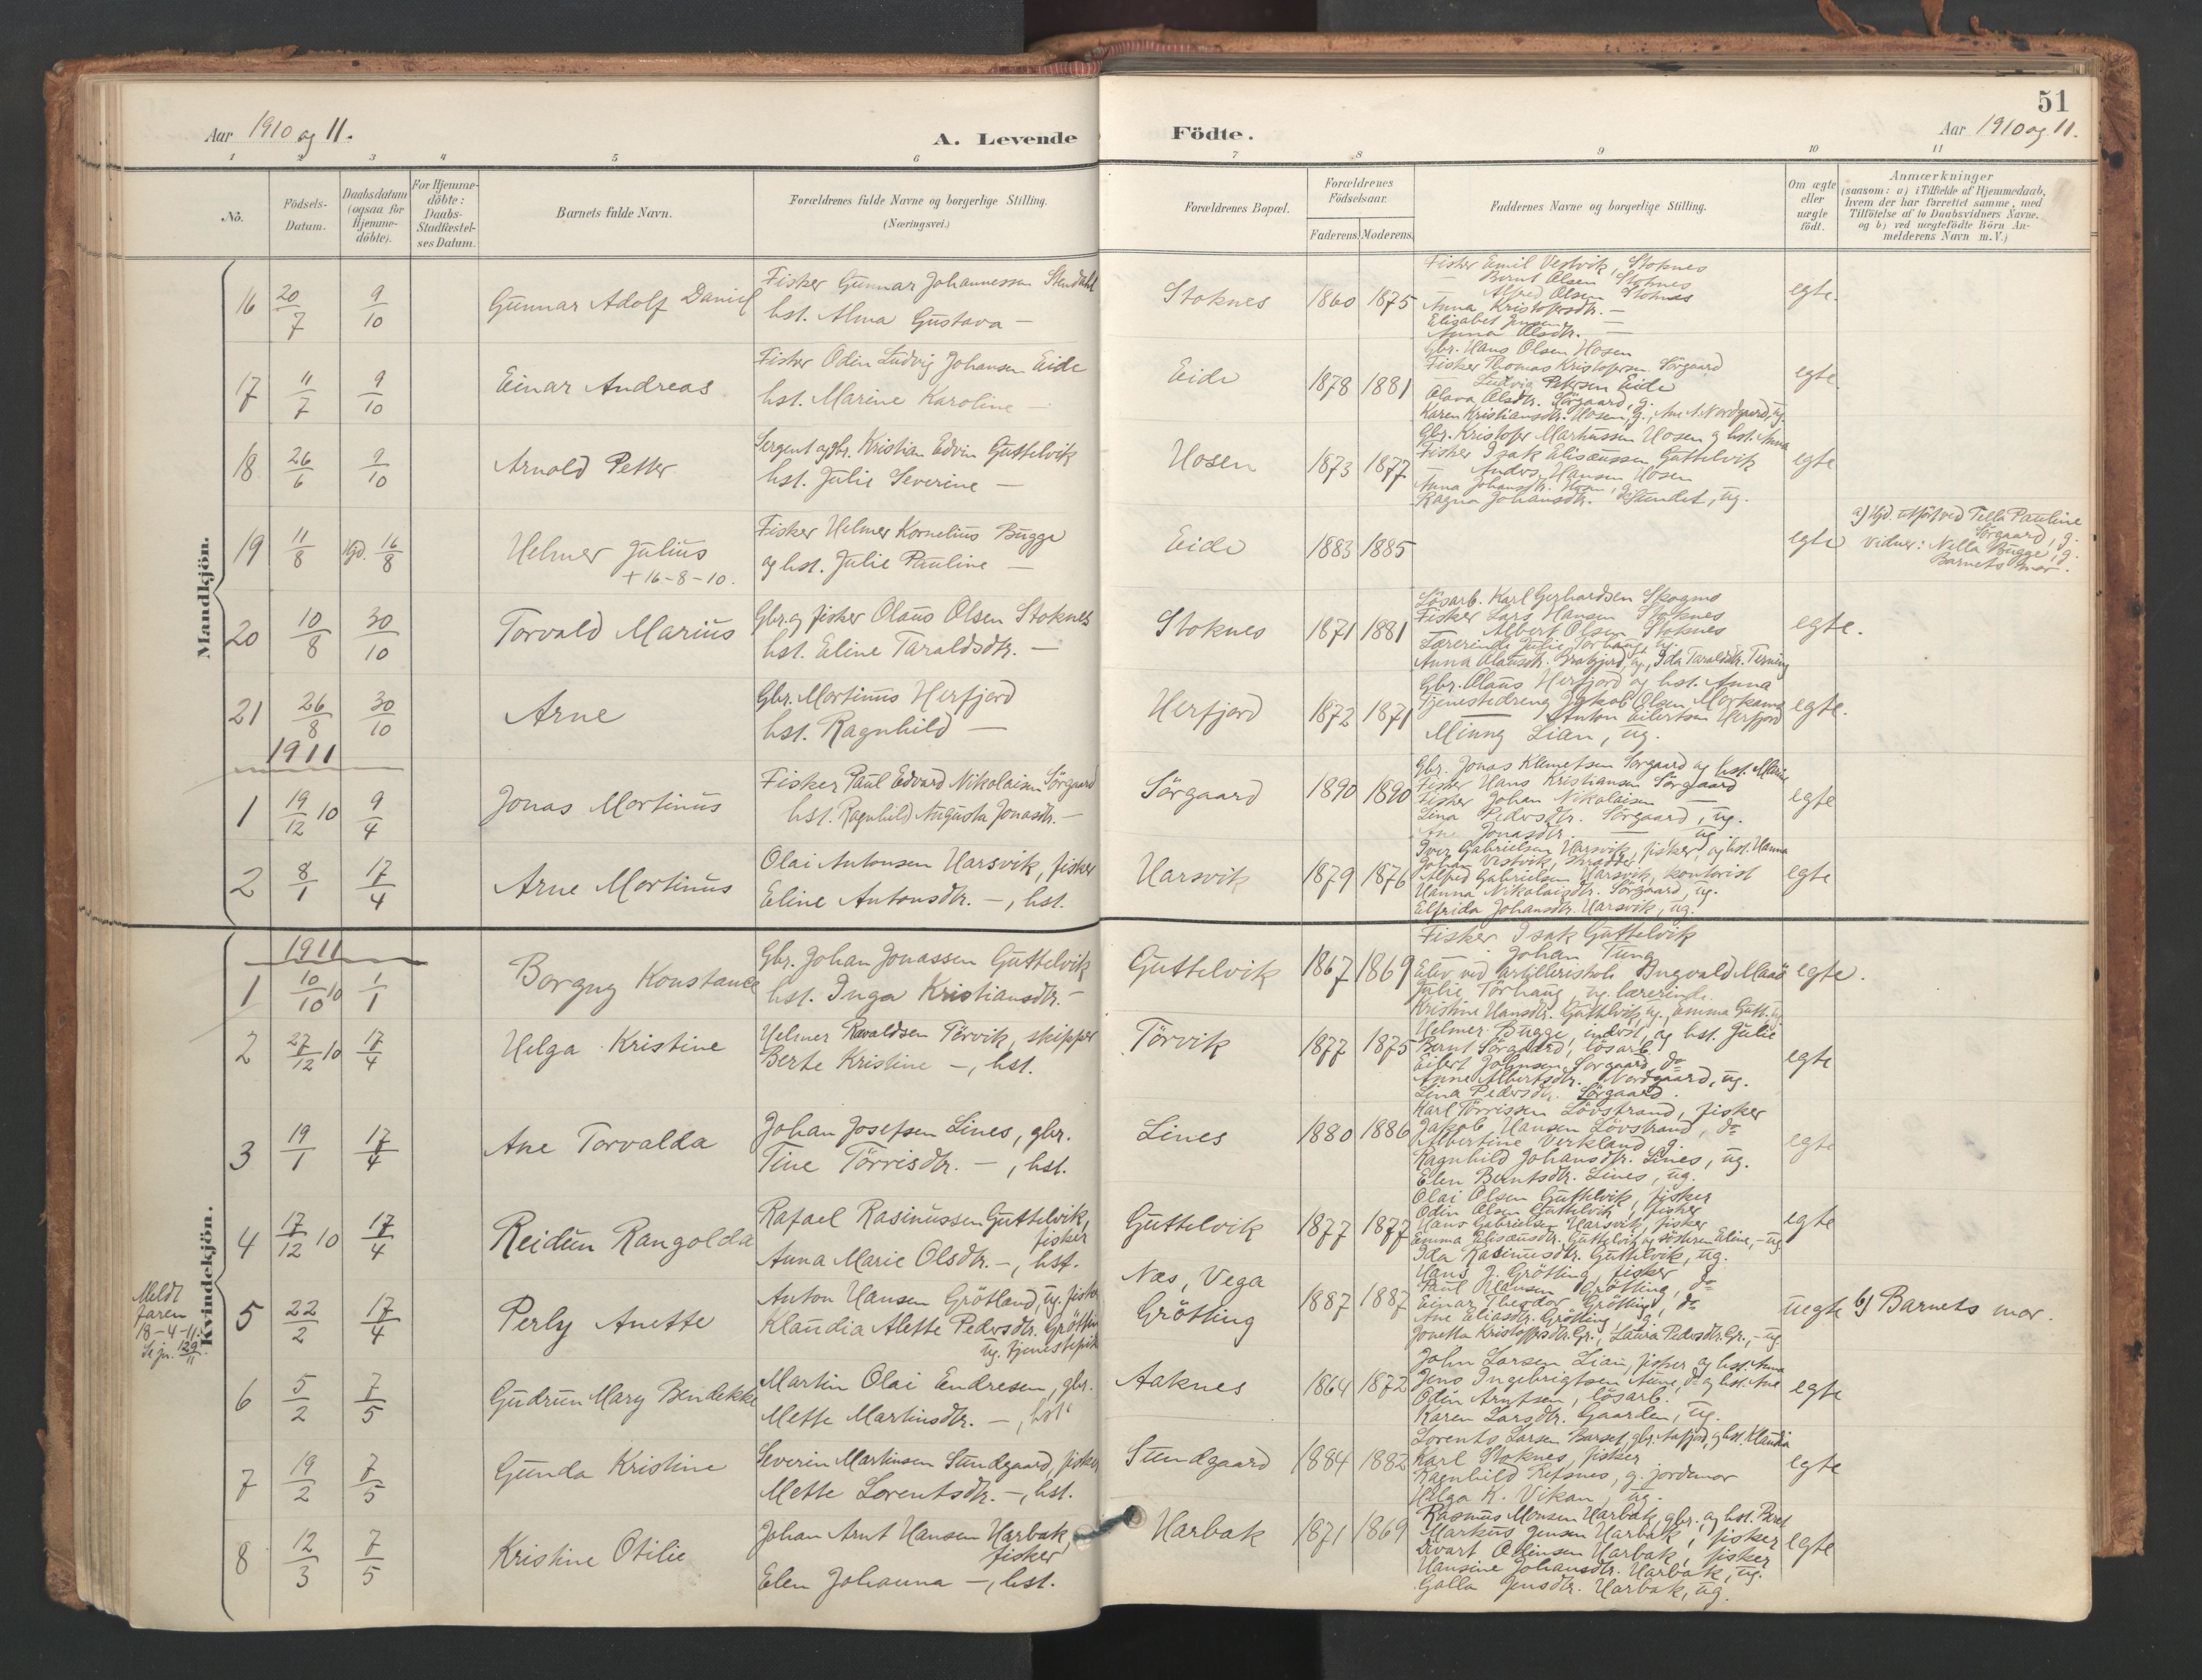 51
Aar 1910 og 11.
A. Levende Födte.
Aar 1910 og 11.
1 2 3 4 5 6 7 8 9 10 11
No.
Födsels-Datum.
Daabsdatum (ogsaa for Hjemme-döbte).
For Hjemme-döbte: Daabs-Stadfæstel-ses Datum.
Barnets fulde Navn.
Forældrenes fulde Navne og borgerlige Stilling.
(Næringsvei.)
Forældrenes Bopæl.
Forældrenes Födselsaar.
Faderens. Moderens.
Faddernes Navne og borgerlige Stilling.
Om ægte eller uægte födt.
Anmærkninger
(saasom: a) i Tilfælde af Hjemmedaab, hvem der har forrettet samme, med Tilföielse af to Daabsvidners Navne, og b) ved uægtefödte Börn An-melderens Navn m. V.)
Mandkjön.
16 20/7 9/10 Gunnar Adolf Daniel
Fisker Gunnar Johannessen Stendahl
hst. Alma Gustava —
Stoknes 1860 1875
Fisker Emil Vestvik, Stoknes
— Bernt Olsen Stoknes
— Alfred Olsen Stoknes
Anna Kristofersdtr. —
Elisabet Jensen —
Anna Olsdtr. —
egte.
17 11/7 9/10 Einar Andreas
Fisker Odin Ludvig Johansen Eide
hst. Marine Karoline —
Eide 1878 1881
Gbr. Hans Olsen Hosen
Fisker Thomas Kristofersen Sörgaard
— Ludvig Petersen Eide
Olava Olsdtr. Sörgaard, g.
Karen Kristiansdtr. Hosen, g., Ane A. Nordgaard, ug
egte.
18 26/6 9/10 Arnold Petter
Sergent og gbr. Kristian Edvin Guttelvik
hst. Julie Severine —
Hosen 1873 1877
Gbr. Kristofer Markussen Hosen og hst. Anna
Fisker Isak Elisæussen Guttelvik
— Andrs. Hansen Hosen
Anna Johansdtr. Hosen, g.
Ragna Johansdtr. Sundet, ug.
egte
19 11/8 Hjd. 16/8 Helmer Julius
+ 16-8-10.
Fisker Helmer Kornelius Bugge
og hst. Julie Pauline —
Eide 1883 1885
egte
a) Hjd. utfört ved Tella Pauline
Sörgaard, g.
Vidner: Nella Bugge, g.
Barnets mor.
20 10/8 30/10 Torvald Marius
Gbr. og fisker Olaus Olsen Stoknes
hst. Eline Taraldsdtr. —
Stoknes 1871 1881
Lösarb. Karl Gerhardsen Skogmo
Fisker Lars Hansen Stoknes
Albert Olsen Stoknes
Lærerinde Julie Törhaug, ug.
Anna Olausdtr. Bratfjord, ug., Ida Taraldsdtr. Terning
egte.
21 26/8 30/10 Arne
Gbr. Martinus Herfjord
hst. Ragnhild —
Herfjord 1872 1871
Gbr. Olaus Herfjord og hst. Anna
Tjenestedreng Jakob Olsen Morkamo
— Anton Eilertsen Herfjord
Minny Lian, ug.
egte.
1911
1 19/12 10 9/4 Jonas Mortinus
Fisker Paul Edvard Nikolaisen Sörgaard
hst. Ragnhild Augusta Jonasdtr. —
Sörgaard 1890 1890
Gbr. Jonas Klemetsen Sörgaard og hst. Marie
Fisker Hans Kristiansen Sörgaard
Fisker Johan Nikolaisen —
Lina Pedersdtr. Sörgaard, ug.
Ane Jonasdtr. — ug
egte
2 8/1 17/4 Arne Mortinus
Olai Antonsen Harsvik, fisker
Eline Antonsdtr. —, hst.
Harsvik 1879 1876
Iver Gabrielsen Harsvik, fisker, og hst. Hanna
Johan Vestvik, skrædder
Alfred Gabrielsen Harsvik, kontorist
Hanna Nikolaisdtr. Sörgaard, ug.
Elfrida Johansdtr. Harsvik, ug.
egte
Kvindekjön.
1911
1 10/10 10 1/1 Borgny Konstanse
Gbr. Johan Jonassen Guttelvik
hst. Inga Kristiansdtr. —
Guttelvik 1867 1869
Fisker Isak Guttelvik
— Johan Tung
Elev ved artilleriskole Ingvald Maaö
Julie Törhaug, ug. lærerinde
Kristine Hansdtr. Guttelvik, ug., Emma Gutt. ug
egte.
2 27/12 10 17/4 Helga Kristine
Helmer Rovaldsen Törvik, skipper
Berte Kristine —, hst.
Törvik 1877 1875
Helmer Bugge, inderst, og hst. Julie
Bernt Sörgaard, lösarb.
Eilert Johnsen Sörgaard, do
Anne Albertsdtr. Nordgaard, ug.
Lina Pedersdtr. Sörgaard.
egte
3 19/1 17/4 Ane Torvalda
Johan Josefsen Lines, gbr.
Tine Törrisdtr. —, hst.
Lines 1880 1886
Karl Törrissen Lövstrand, fisker
Jakob Hansen Lövstrand, do
Albertine Verkland, g.
Ragnhild Johansdtr. Lines, ug.
Elen Berntsdtr. Lines, ug.
egte
4 17/12 10 17/4 Reidun Rangolda
Rafael Rasinussen Guttelvik,
fisker
Anna Marie Olsdtr. —, hst.
Guttelvik 1877 1877
Olai Olsen Guttelvik, fisker
Odin Olsen Guttelvik, fisker
Hans Gabrielsen Harsvik, fisker
Emma Elisæusdtr. Guttelvik og söstren Eline, — ug
Ida Rasinusdtr. Guttelvik, ug.
egte
Meldt
faren
18-4-11.
Se jn. 129/11
5 22/2 17/4 Perly Anette
Anton Hansen Grötland, ug. fisker
Klaudia Alette Pedersdtr. Grötting
ug. tjenestepike
Nas, Vega
Grötting
1887 1887
Hans J. Grötting, fisker
Paul Hansen Grötting, do
Einar Theodor Grötting, do
Ane Eliasdtr. Grötting, g.
Jonetta Kristoffersdtr. Gr., Laura Pedersdtr. Gr., — ug
uegte
b) Barnets mor.
6 5/2 7/5 Gudrun Mary Bendekke
Martin Olai Endresen, gbr.
Mette Martinsdtr. —, hst.
Aaknes 1864 1872
John Larsen Lian, fisker og hst. Anna
Jens Ingebrigtsen Aune, do og hst. Ane
Odin Arntsen, lösarb.
Karen Larsdtr. Gaarden, ug.
egte
7 19/2 7/5 Gunda Kristine
Severin Martinsen Sundgaard, fisker
Mette Lorentsdtr. —, hst.
Sundgaard 1884 1882
Lorents Larsen Barset, gbr. Aafjord, og hst. Klaudia
Karl Stoknes, fisker
Ragnhild Refsnes, g. jordmor
Helga K. Vikan, ug.
egte
8 12/3 7/5 Kristine Otilie
Johan Arnt Hansen Harbak,
fisker
Elen Johanna —, hst.
Harbak 1871 1869
Rasmus Monsen Harbak, gbr., og hst. Beret
Markus Jensen Harbak, fisker
Sivart Odinsen Harbak, fisker
Hansine Johansdtr. Harbak, ug.
Galla Jensdtr. Harbak, ug.
egte